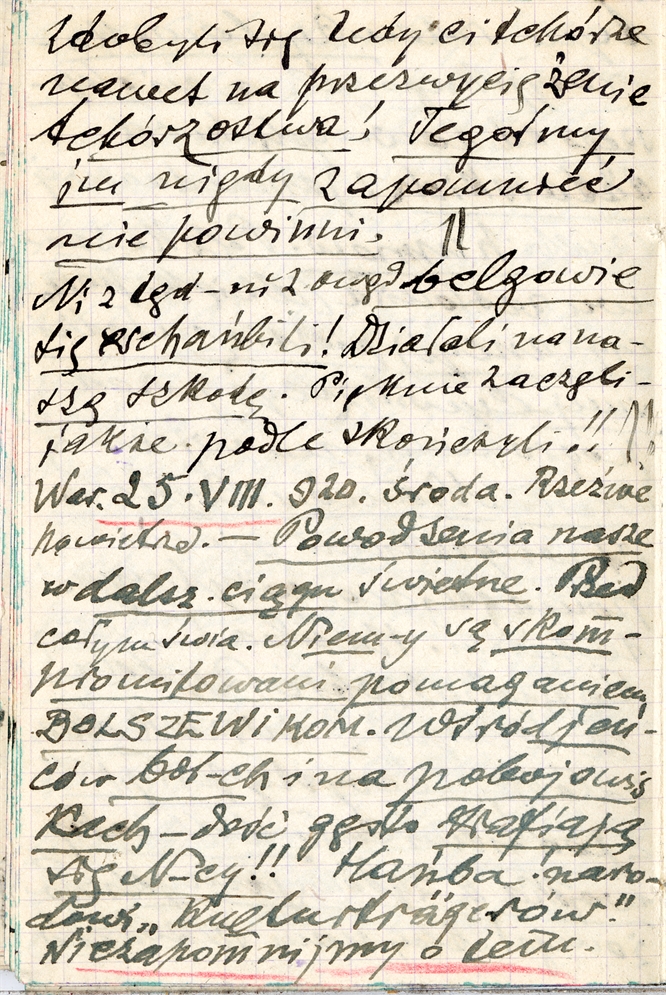 zdobyli się żedy ci tchórze
nawet na przezwyciężenie
tchórzostwa! Tego my
im nigdy zapomnieć
nie powinni.
Ni z tgd – ni z owgd belgowie
się zchańbili! Działali na na-
szą szkodę. Pięknie zaczęli -
jakże podle skończyli!!
War. 25. VIII. 920. środa. Rzeźwe
powietrze. — Powodzenia nasze
w dalsz. ciągu świetne. Przed
całym świa. Niem-y są skom-
promitowani pomaganiem
BOLSZEWIKOM. Wśród jeń-
ców bol-ch i na pobojowis
kach – dość gęsto trafiają
się N-cy!! Hańba naro-
dowi „Kulturträgerów."
Niezapomnijmy o tem.